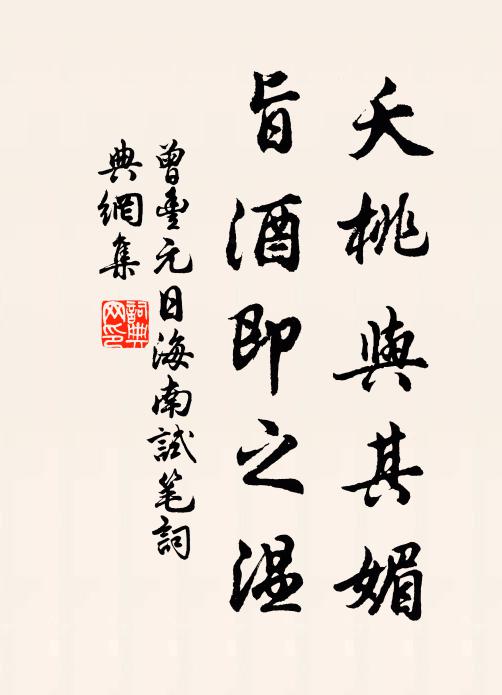 夭桃與其媚
旨酒即之温
曾豐元日海南試笔詞
典網集
詞典
网印